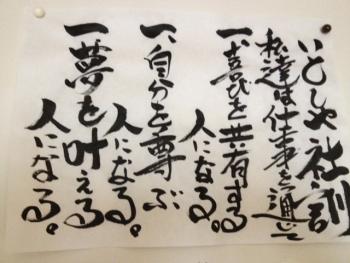 いとしや社訓
私達は仕事を通じて
一、喜びを共有する
人になる。
一、自分を尊ぶ
人になる。
一、夢を叶える
人になる。